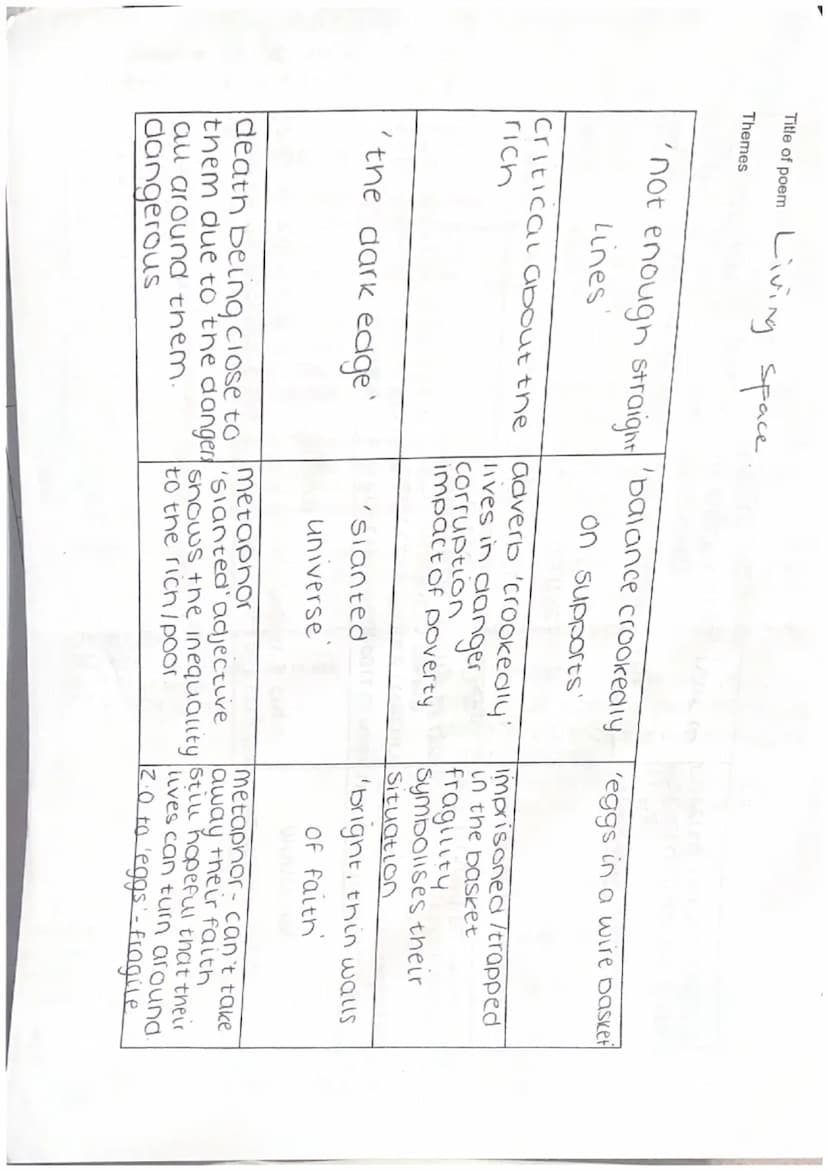 Title of poem Living Space.
Themes
'not enough straight
lines'
'balance crookedly
on supports'
'eggs in a wire basket'
critical about the
rich
adverb 'crookedly'
lives in danger
corruption
impact of poverty
imprisoned/trapped
in the basket
fragility
symbolises their
situation
'the dark edge'
'slanted
universe'
'bright, thin walls
of faith'
death being close to
them due to the dangers
all around them.
dangerous
metaphor
'slanted' adjective
shows the inequality
to the rich/poor
metaphor - can't take
away their faith
still hopeful that their
lives can turn around.
z.o to 'eggs' - fragile